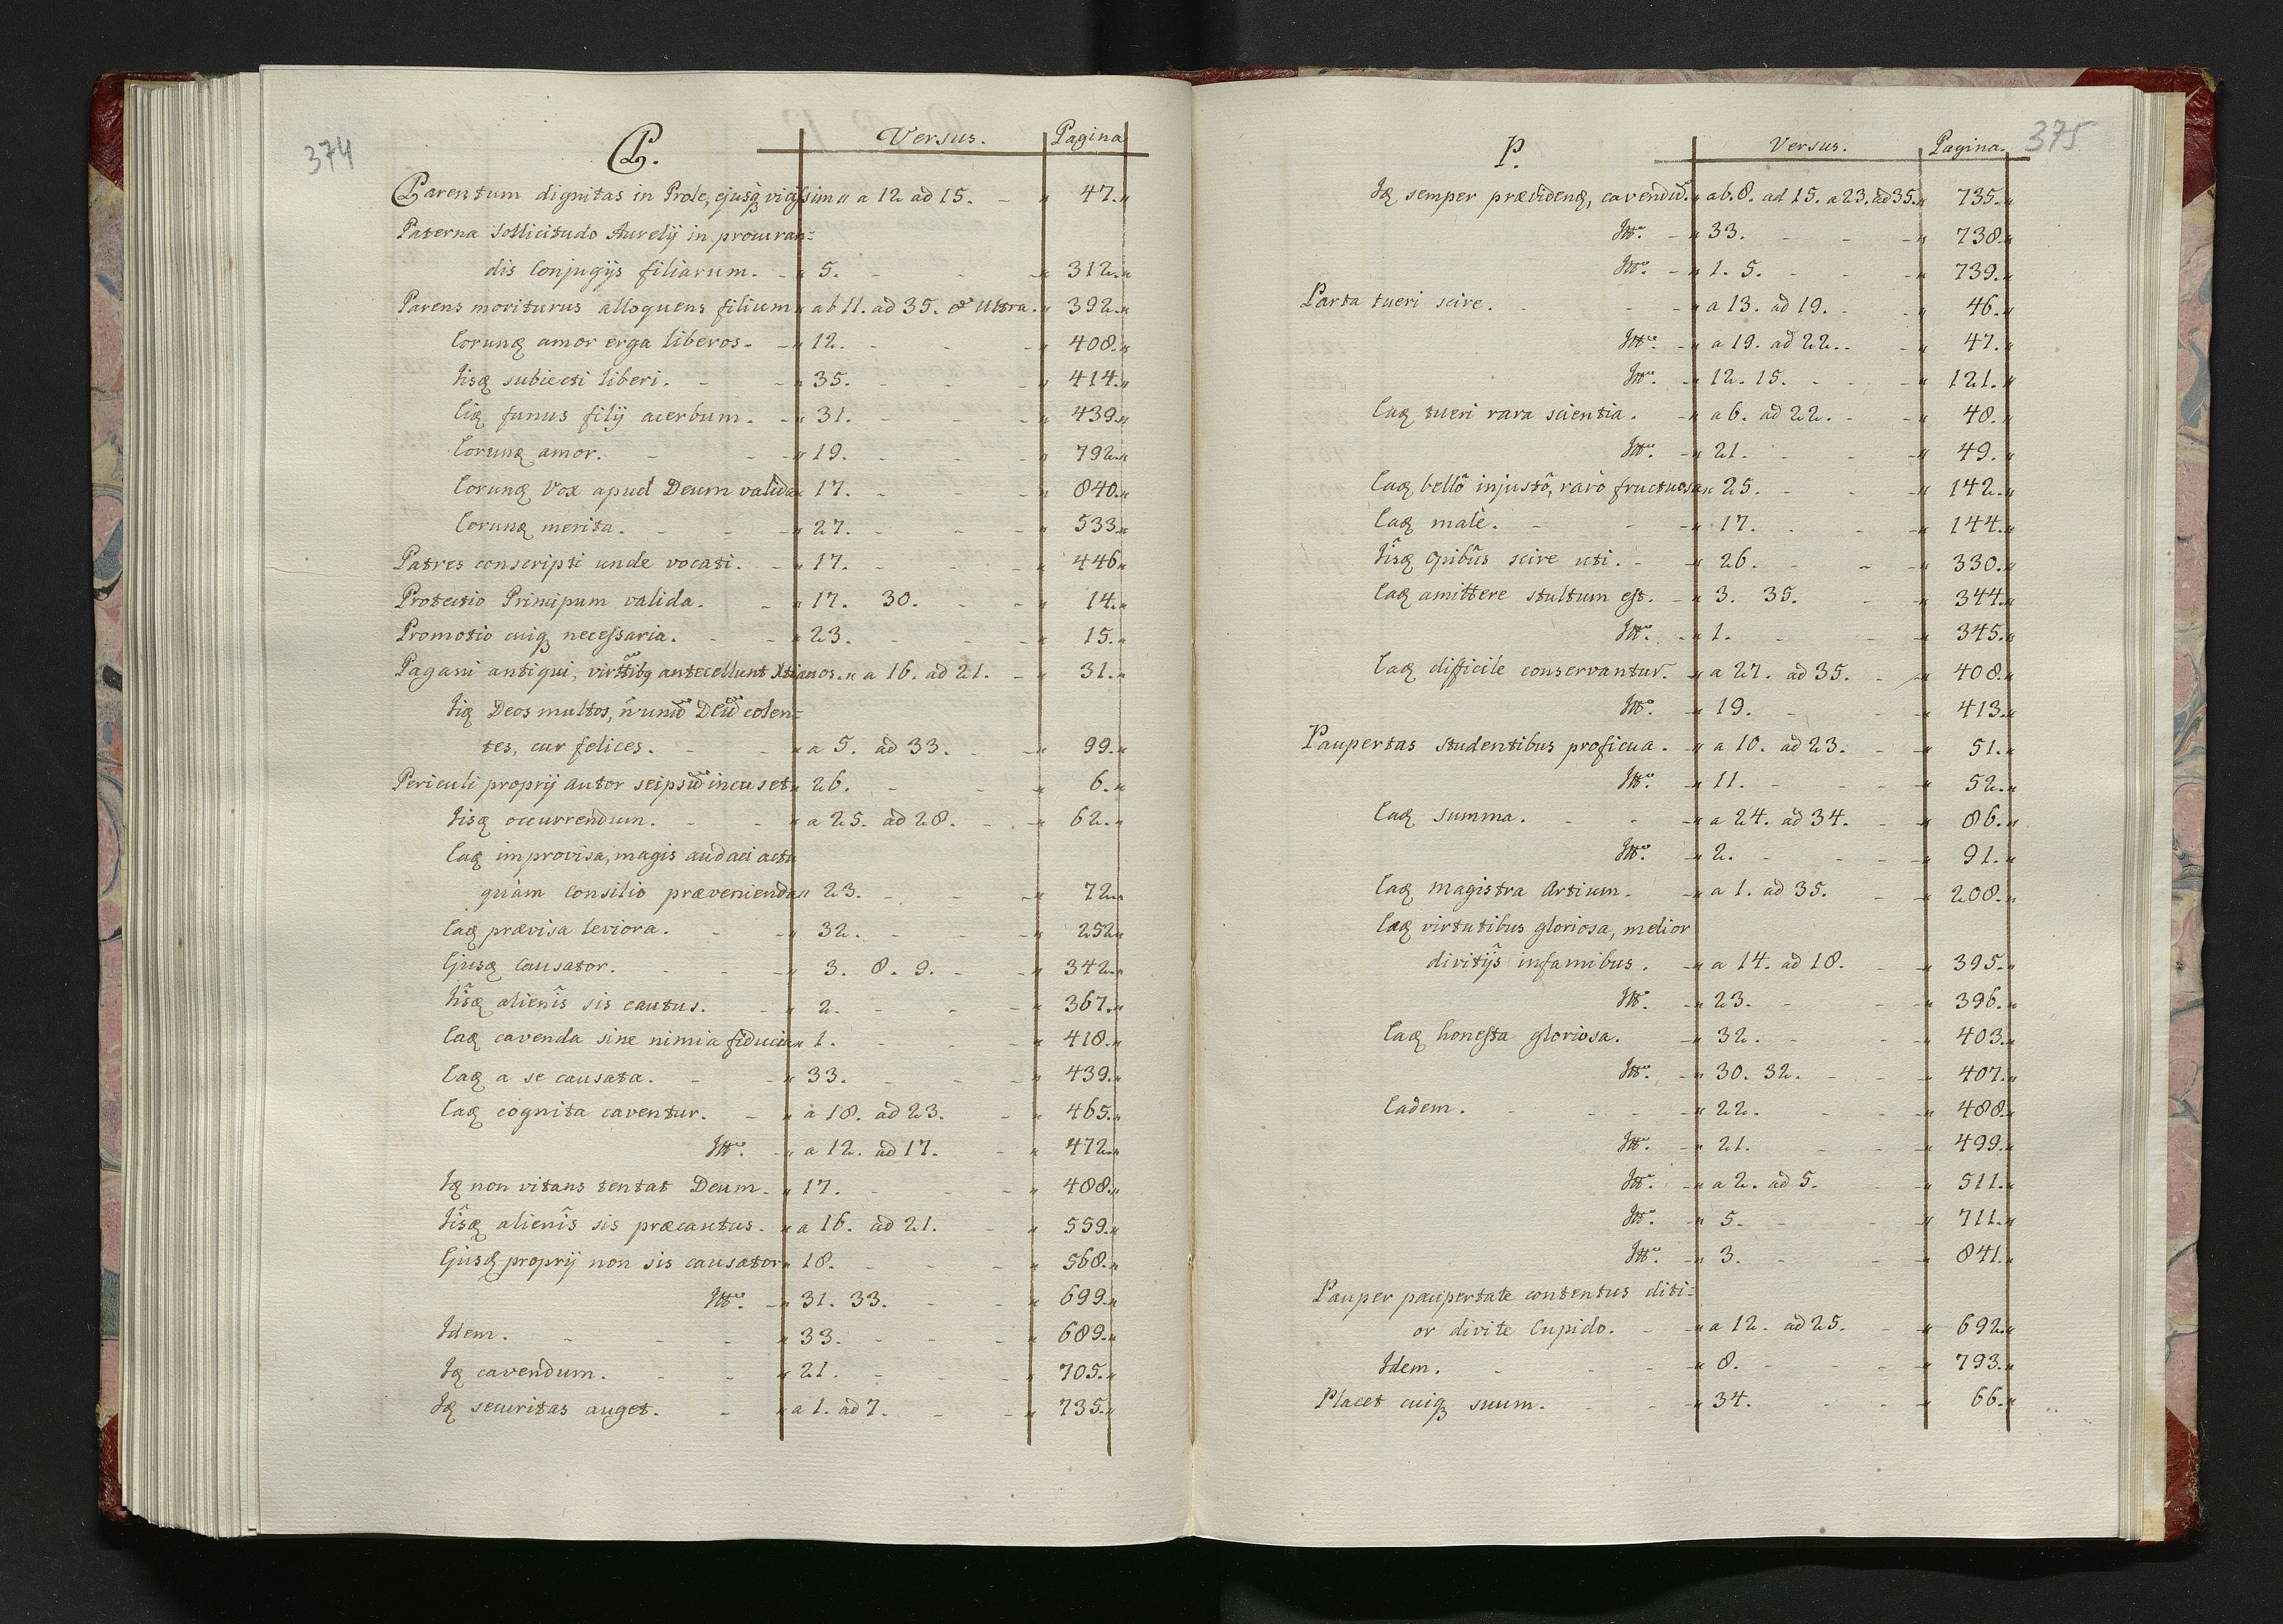 374
P. Versus. Pagina
Parentum dignitas in Prole, ejusq; vicissim „ a 12 ad 15. - „ 47. „
Paterna Sollicitudo Aurelij in procuran=
dis Conjugijs filiarum. - „ 5. - - - „ 312. „
Parens moriturus alloquens filium „ ab 11. ad 35. & Ultra. „ 392. „
Eorunq amor erga liberos. - „ 12. - - - „ 408. „
Iisq subiecti liberi. - - „ 35. - - - „ 414. „
Eiq funus filij acerbum. - „ 31. - - - „ 439. „
Eorunq amor. - - „ 19. - - - „ 792. „
Eorunq Vox apud Deum valida „ 17. - - „ 840. „
Eorunq merita. - - - „ 27. - - - „ 533. „
Patres conscripti unde vocati. - „ 17. - - - „ 446. „
Protectio Principum valida. - „ 17. 30. - - „ 14. „
Promotio cuiq; necessaria. - - „ 23. - - - „ 15. „
Pagani antiqui, virttibq antecellunt Xtianos. „ a 16. ad 21. - „ 31. „
Iiq Deos multos, ñ unũ Deũ colen=
tes, cur felices. - - „ a 5. ad 33. - - „ 99. „
Periculi proprij autor seipsũ incuset „ 26. - - „ 6. „
Iisq occurrendum. - - „ a 25. ad 28. - - „ 62. „
Eaq improvisa, magis audaci actu
quàm Consilio prævenienda „ 23. - - - „ 72. „
Eaq prævisa leviora. - - „ 32. - - - „ 252 „
Ejusq Causator. - - - „ 3. 8. 9. - - „ 342. „
Iîsq alienîs sis cautus. - „ 2. - - - „ 367. „
Eaq cavenda sine nimia fiducia „ 1. - - - „ 418. „
Eaq a se causata. - - „ 33. - - - „ 439. „
Eaq cognita caventur. - „ a 18. ad 23. - „ 465. „
Itt̃o. - „ a 12. ad 17. - „ 472. „
Iq non vitans tentat Deum. - „ 17. - - - „ 488. „
Iîsq alienîs sis præcautus. - „ a 16. ad 21. - „ 559. „
Ejusq proprij non sis causator „ 18. - - - „ 568. „
Itt̃o. - „ 31. 33. - - „ 699. „
Idem. - - - „ 33. - - - „ 689. „
Iq cavendum. - - „ 21. - - - „ 705. „
Iq securitas auget. - „ a 1. ad 7. - - „ 735. „
375
P. Versus. Pagina.
Iq semper prævidenq, cavendũ. „ ab. 8. ad 15. a 23. ad 35. „ 735. „
Itt̃o. - „ 33. - - - „ 738. „
Itt̃o. - „ 1. 5. - - - „ 739. „
Parta tueri scire. - - - „ a 13. ad 19. - - „ 46. „
Itt̃o. - „ a 19. ad 22. - - „ 47. „
Itt̃o. - „ 12. 15. - - - „ 121. „
Eaq tueri rara scientia. - „ a 6. ad 22. - - „ 48. „
Itt̃o. - „ 21. - - - „ 49. „
Eaq bellô injustô, rarò fructuosa „ 25. - - „ 142. „
Eaq malè. - - - „ 17. - - - „ 144. „
Iîsq Opibûs scire uti. - „ 26. - - - „ 330. „
Eaq amittere stultum est. - „ 3. 35. - - „ 344. „
Itt̃o. - „ 1. - - - „ 345. „
Eaq difficile conservantur. „ a 27. ad 35. - - „ 408. „
Itt̃o. - „ 19. - - - „ 413. „
Paupertas studentibus proficua. - „ a 10. ad 23. - „ 51. „
Itt̃o. - „ 11. - - - „ 52. „
Eaq summa. - - - „ a 24. ad 34. - „ 86. „
Itt̃o. - „ 2. - - - „ 91. „
Eaq magistra Artium. - „ a 1. ad 35. - „ 208. „
Eaq virtutibus gloriosa, melior
divitijs infamibus. - „ a 14. ad 18. - „ 395. „
Itt̃o. - „ 23. - - - „ 396. „
Eaq honesta gloriosa. - „ 32. - - - „ 403. „
Itt̃o. - „ 30. 32. - - „ 407. „
Eadem. - - - „ 22. - - - „ 488. „
Itt̃o. - „ 21. - - - „ 499. „
Itt̃o. - „ a 2. ad 5. - „ 511. „
Itt̃o. - „ 5. - - - „ 711. „
Itt̃o. - „ 3. - - - „ 841. „
Pauper paupertate contentus diti=
or divite Cupido. - „ a 12. ad 25. - „ 692. „
Idem. - - - „ 8. - - - „ 793. „
Placet cuiq; suum. - - „ 34. - - - „ 66. „